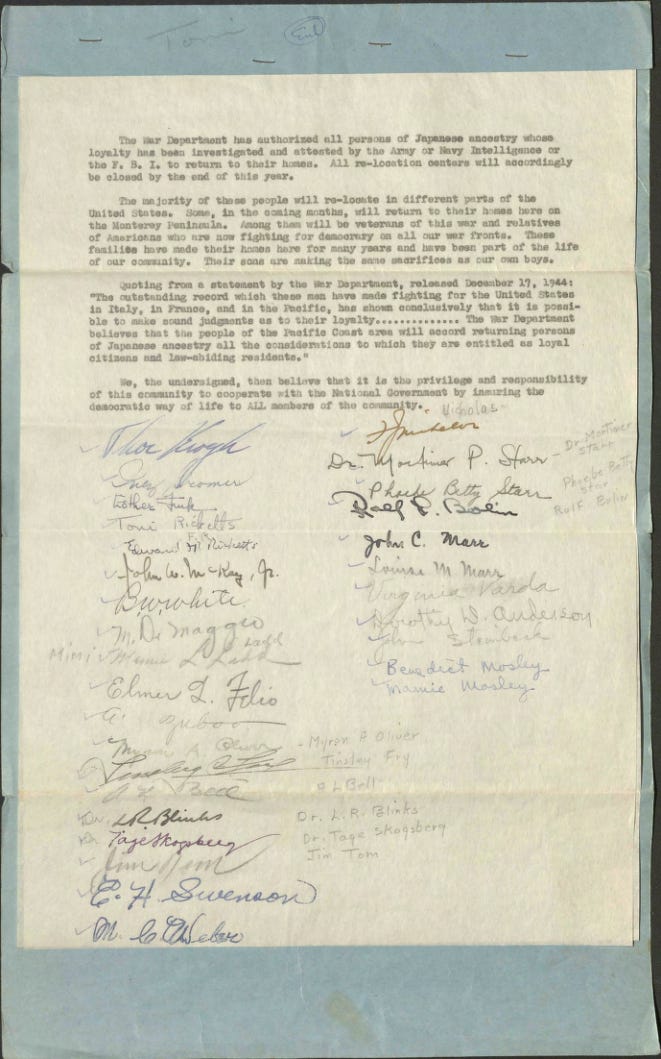 Toni
The War Department has authorized all persons of Japanese ancestry whose
loyalty has been investigated and attested by the Army or Navy Intelligence or
the F. B. I. to return to their homes. All re-location centers will accordingly
be closed by the end of this year.
The majority of these people will re-locate in different parts of the
United States. Some, in the coming months, will return to their homes here on
the Monterey Peninsula. Among them will be veterans of this war and relatives
of Americans who are now fighting for democracy on all our war fronts. These
families have made their homes here for many years and have been part of the life
of our community. Their sons are making the same sacrifices as our own boys.
Quoting from a statement by the War Department, released December 17, 1944:
"The outstanding record which these men have made fighting for the United States
in Italy, in France, and in the Pacific, has shown conclusively that it is possi-
ble to make sound judgments as to their loyalty.............. The War Department
believes that the people of the Pacific Coast area will accord returning persons
of Japanese ancestry all the considerations to which they are entitled as loyal
citizens and law-abiding residents."
We, the undersigned, then believe that it is the privilege and responsibility
of this community to cooperate with the National Government by insuring the
democratic way of life to ALL members of the community.
Thor Krogh
Esther Fink
Toni Ricketts
Edward F. Ricketts
John W. McKay, Jr.
B. W. White
M. Di Maggio
Mimi
Elmer L. Filio
A.
Myron A. Oliver - Myron A Oliver
Tinsley Fry
A L Bell
Dr. LR Blinks Dr. L.R. Blinks
Dr Tage Skogsberg Dr. Tage Skogsberg
Jim Tom Jim Tom
E. H. Swenson
M. C. Weber
Nicholas
Dr. Mortimer P. Starr - Dr Mortimer Starr
Phoebe Betty Starr Phoebe Betty Star
Rolf L. Bolin Rolf Bolin
John C. Marr
Louise M. Marr
Virginia Varda
Dorothy D. Anderson
John Steinbeck
Benedict Mosley
Mamie Mosley